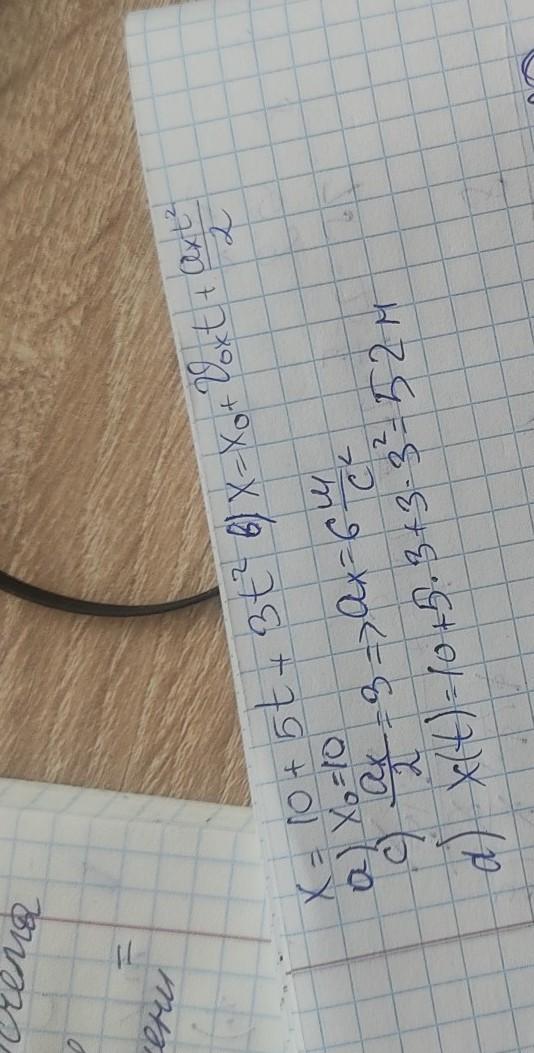 x = 10 + 5t + 3t² в) x = x₀ + υ₀ₓt + aₓt²/2
a) x₀ = 10
c) ax/2 = 3 => ax = 6 м/с²
d) x(t) = 10 + 5 · 3 + 3 · 3² = 52 м
=